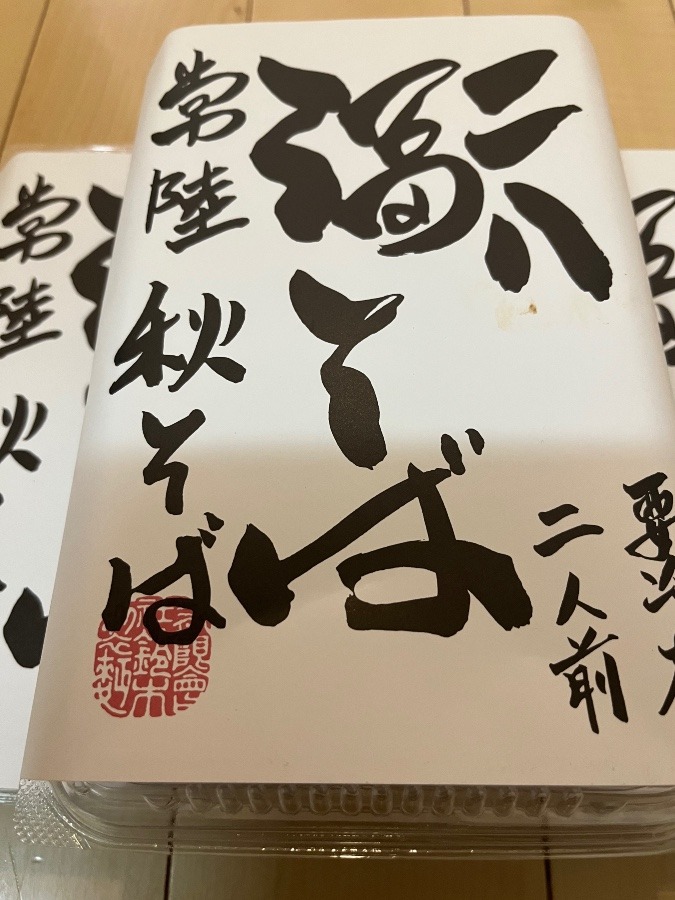 要冷
二人前
二八
そば
常陸秋そば
常陸秋